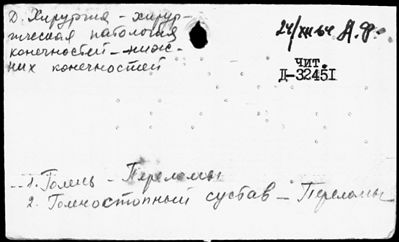 Д. Хирургия - хирур-
гическая патология
конечностей - ниж-
них конечностей
24/XII-64 А.Ф.
ЧИТ.
Д-32451
1. Голень - Переломы
2. Голеностопный сустав - Переломы